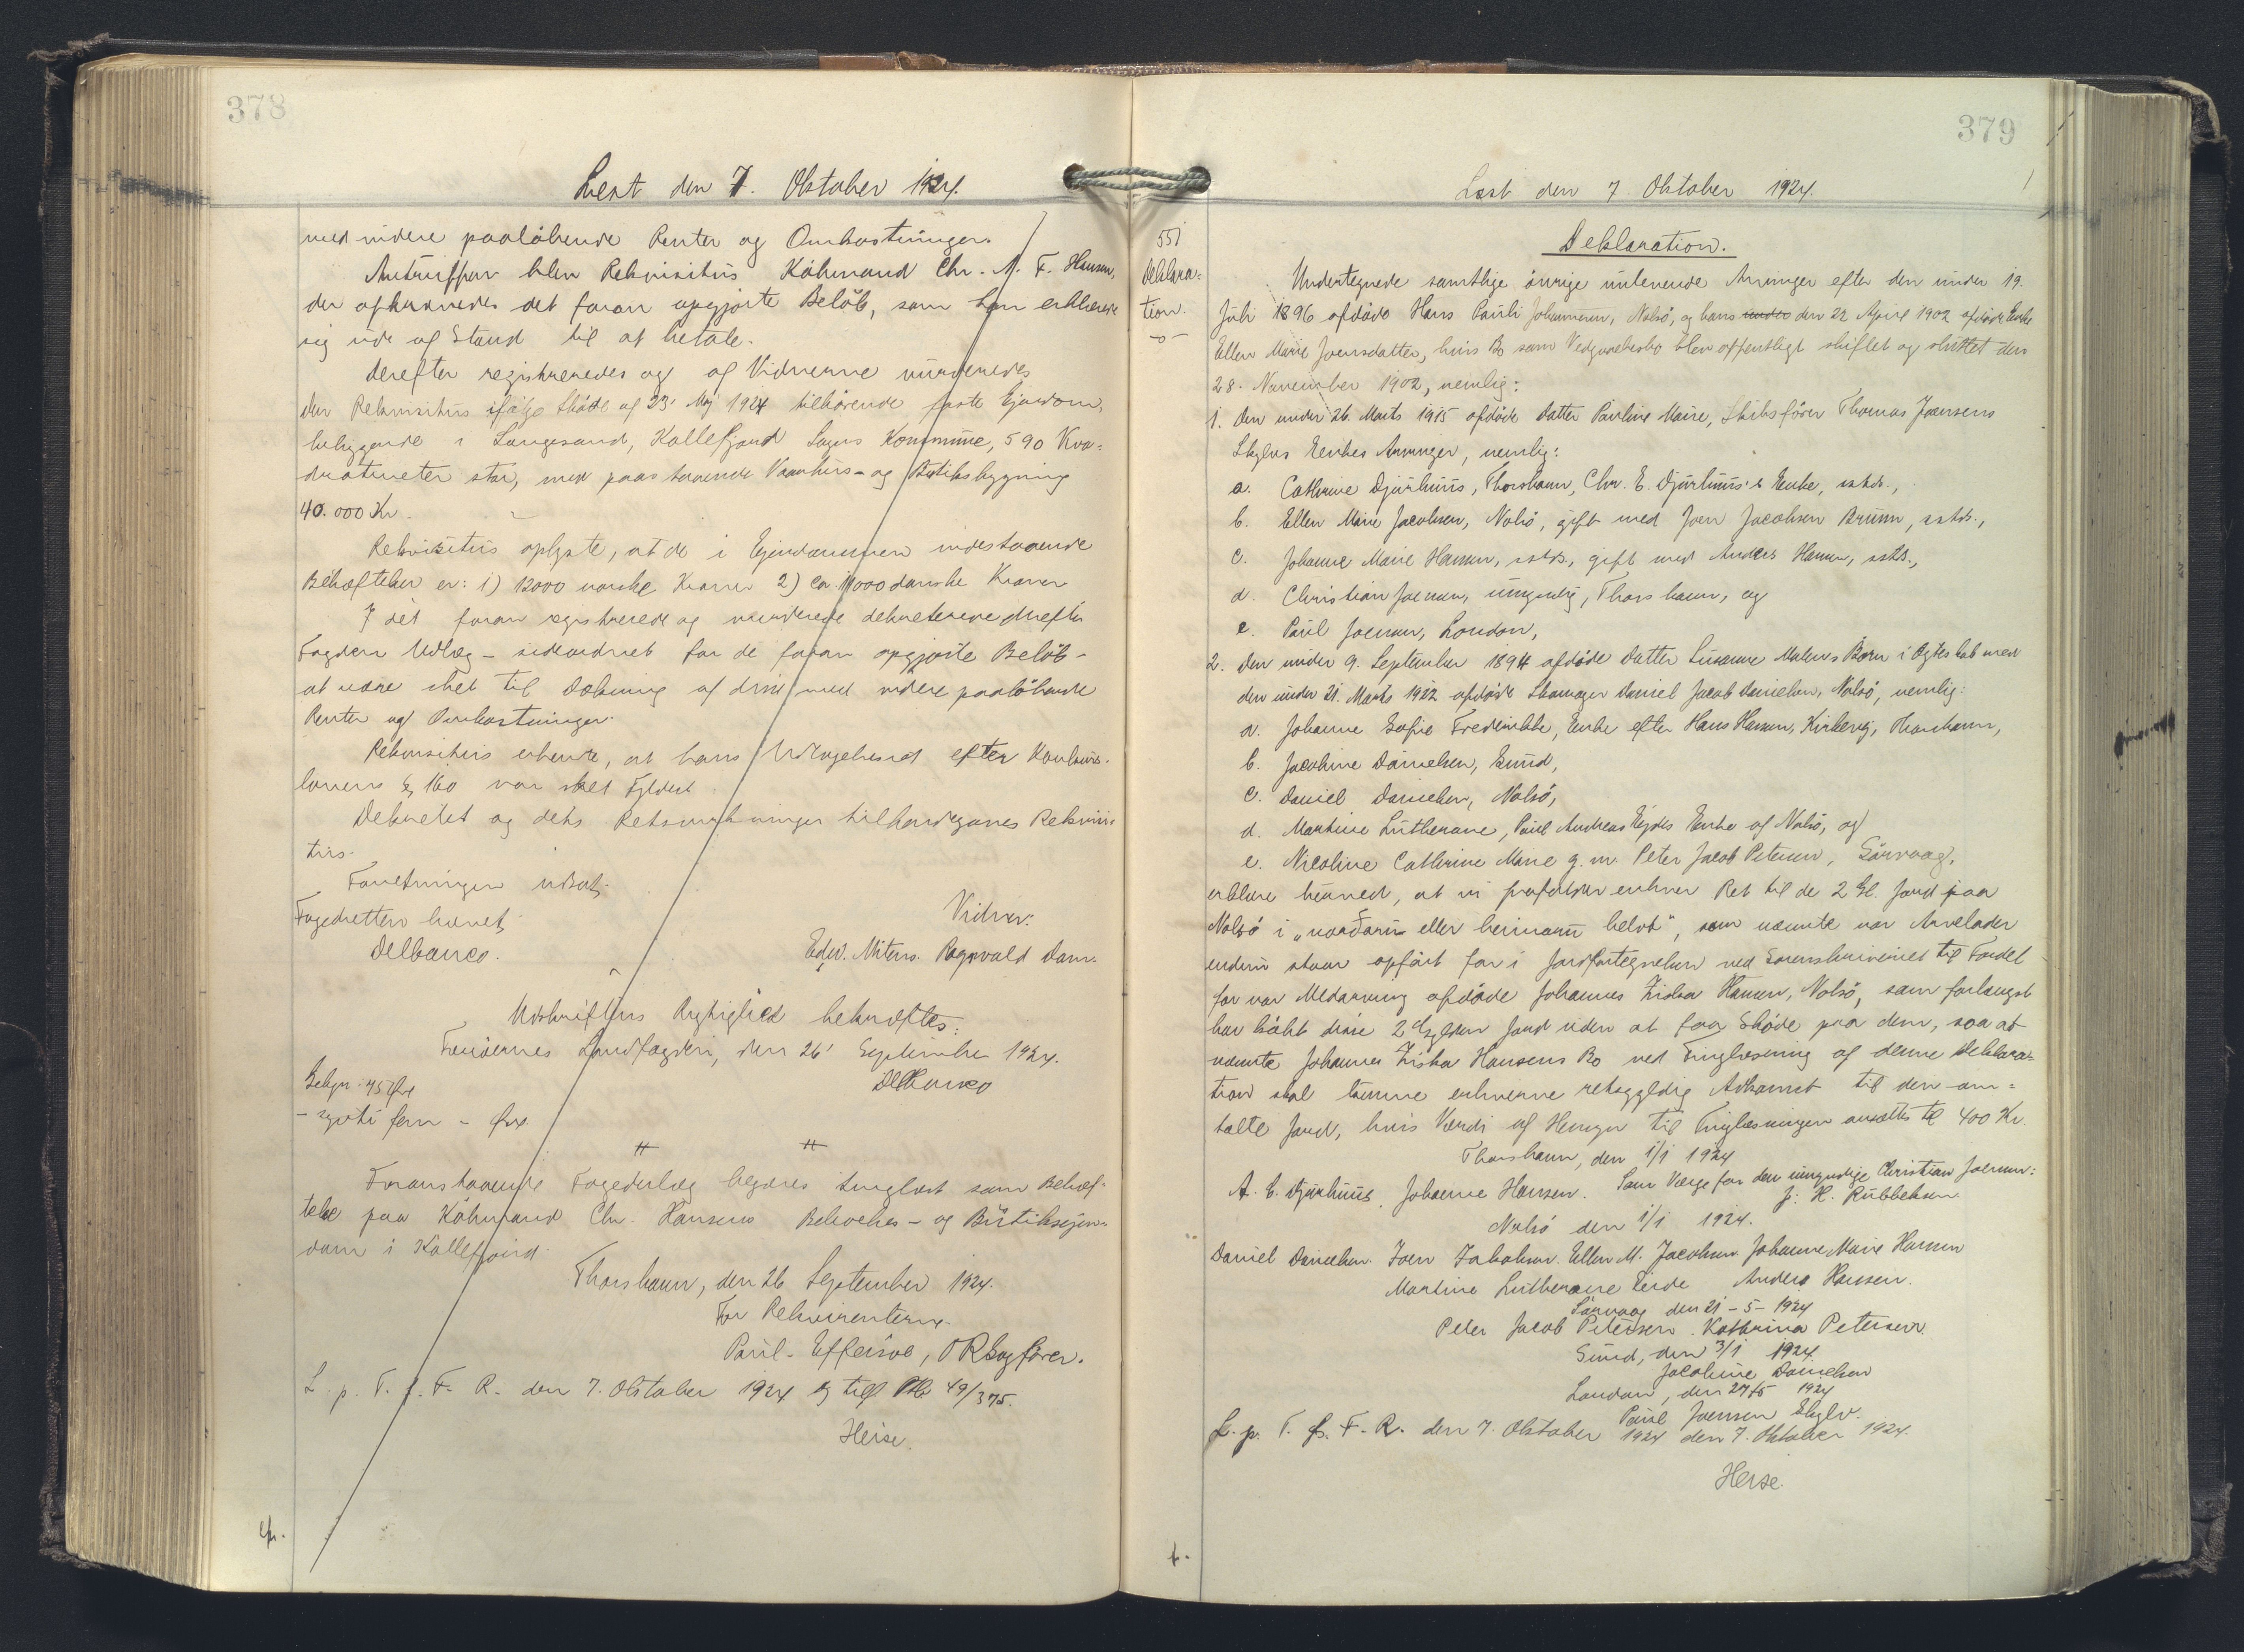 378
Læst den 7. Oktober 1924.
med videre paaløbende Renter og Omkostninger.
Antruffen blev Rekvisitus Købmand Chr. A. F. Hansen,
der afkrævedes det foran opgjorte Beløb, som han erklærede
sig ude af Stand til at betale.
Derefter registreredes og af Vidnerne vurderedes
den Rekvisitus ifølge Skøde af 23' Maj 1924 tilhørende faste Ejendom,
beliggende i Langesand, Kollefjord Sogns Kommune, 590 Kva=
dratmeter stor, med paastaaende Vaanhus- og Butiksbygning
40.000 Kr.
Rekvisitus oplyste, at de i Ejendommen indestaaende
Behæftelser er: 1) 12000 norske Kroner 2) ca. 11000 danske Kroner
I det foran registrerede og vurderede dekreterede derefter
Fogden Udlæg - sideordnet for de foran opgjorte Beløb -
at være sket til Dækning af disse med videre paaløbende
Renter og Omkostninger.
Rekvisitus erkendte, at hans Udtagelsesret efter Konkurs-
lovens § 160 var sket Fyldest
Dekretet og dets Retsvirkninger tilkendegaves Rekvisi
tus.
Forretningen udsat.
Fogedretten hævet.
Delbanco.
Vidner:
Edw. Mitens. Ragnvald Dam.
Udskriftens Rigtighed bekræftes:
Færøernes Landfogderi, den 26' September 1924.
Delbanco
Gebyr: 75 Øre
- syvti fem - Øre
Foranstaaende Fogedudlæg begæres tinglæst som Behæf-
telse paa Købmand Chr. Hansens Beboelses- og Butiksejen-
dom i Kollefjord.
Thorshavn, den 26 September 1924.
For Rekvirenterne.
Poul. Effersøe, ORSagfører.
L. p. T. f. F. R. den 7. Oktober 1924 Kfr. 49/375.
Heise.
379
Læst den 7 Oktober 1924.
551
Deklara=
tion.
-o-
Deklaration.
Undertegnede samtlige øvrige nulevende Arvinger efter den under 19.
Juli 1896 afdøde Hans Pauli Johannesen, Nolsø, og hans under den 22 April 1902 afdøde Enke
Ellen Marie Joensdatter, hvis Bo som Vedgaaelsesbo blev offentligt skiftet og sluttet den
28. November 1902, nemlig:
1. Den under 26. Marts 1915 afdøde Datter Pauline Marie, Skibsfører Thomas Joensens
Skylvs Enkes Arvinger, nemlig:
a. Cathrine Djurhuus, Thorshavn, Chr. E. Djurhuus's Enke, sstds.,
b. Ellen Marie Jacobsen, Nolsø, gift med Joen Jacobsen Brunn, sstds.,
c. Johanne Marie Hansen, sstds., gift med Anders Hansen, sstds.,
d. Christian Joensen, umyndig, Thorshavn, og
e. Poul Joensen, London,
2. Den under 9. September 1894 afdøde Datter Susanne Malenes Børn i Ægteskab med
den under 21. Marts 1922 afdøde Skomager Daniel Jacob Danielsen, Nolsø, nemlig:
a. Johanne Sofie Frederikke, Enke efter Hans Hansen, Kirkevej, Thorshavn,
b. Jacobine Danielsen, Sund,
c. Daniel Danielsen, Nolsø,
d. Martine Lutherane, Poul Andreas Ejdes Enke af Nolsø, og
e. Nicoline Cathrine Marie g. m. Peter Jacob Petersen, Sørvaag,
erklære herved, at vi frafalder enhver Ret til de 2 Gl. Jord paa
Nolsø i "norðaru eller heimaru helvt", som nævnte vor Arvelader
endnu staar opført for i Jordfortegnelsen ved Sorenskriveriet til Fordel
for vor Medarving afdøde Johannes Ziska Hansen, Nolsø, som forlængst
har købt disse 2 Gylden Jord uden at faa Skøde paa dem, saa at
nævnte Johannes Ziska Hansens Bo ved Tinglæsning af denne Deklara=
tion skal kunne erhverve retsgyldig Adkomst til den om=
talte Jord, hvis Værdi af Hensyn til Tinglæsningen ansættes til 400 Kr.
Thorshavn, den 1/1 1924
A. C. Djurhuus. Johanne Hansen. Som Værge for den umyndige Christian Joensen:
J. H. Rubeksen.
Nolsø den 1/1 1924.
Daniel Danielsen. Joen Jakobsen. Ellen M. Jacobsen. Johanne Marie Hansen
Martine Lutherane Eide Anders Hansen.
Sørvaag den 21-5-1924
Peter Jacob Petersen. Kathrina Petersen
Sund, den 3/1 1924
Jacobine Danielsen
London, den 27/5 1924
Poul Joensen Skylv.
L. p. T. f. F. R. den 7. Oktober 1924 den 7. Oktober 1924.
Heise.